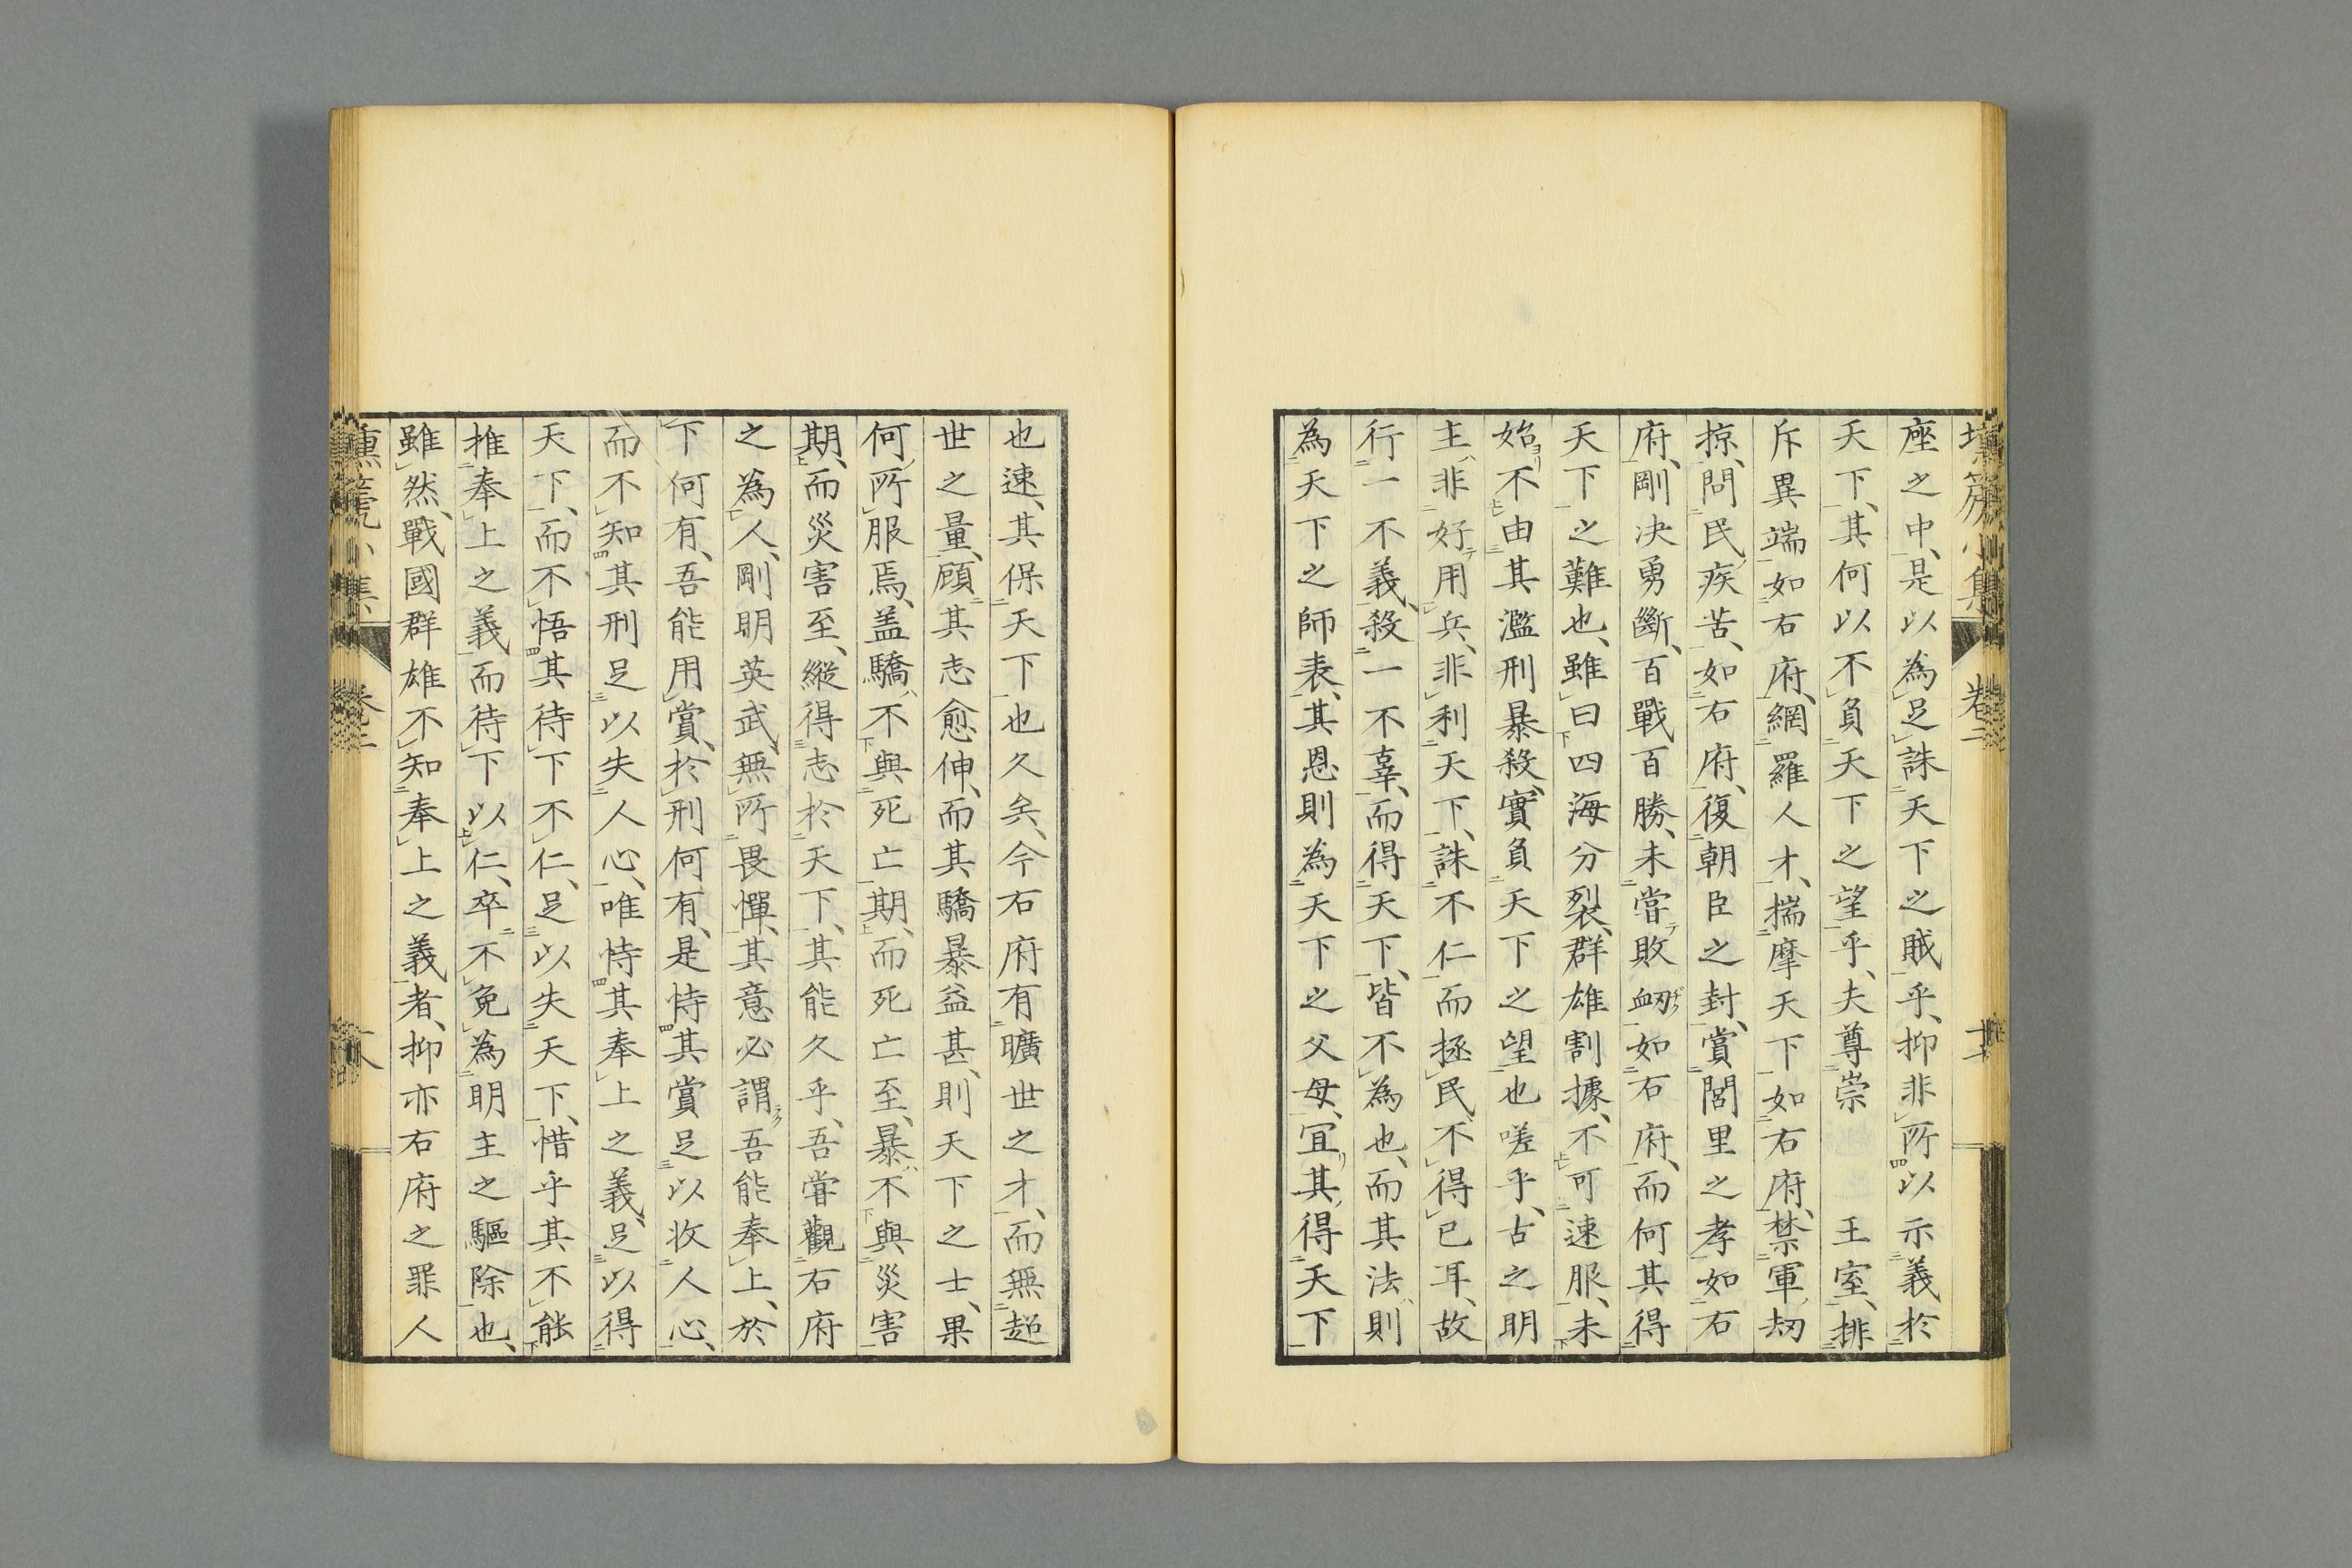 座之中、是以為足誅天下之賊乎、抑非所以示義於
天下、其何以不負天下之望乎、夫尊崇　王室、排
斥異端、如右府、網羅人才、揣摩天下、如右府、禁軍劫
掠、問民疾苦、如右府、復朝臣之封、賞閭里之孝、如右
府、剛决勇斷、百戰百勝、未嘗敗衂、如右府、而何其得
天下之難也、雖曰四海分裂、群雄割據、不可速服、未
始不由其濫刑暴殺、實負天下之望也、嗟乎、古之明
主、非好用兵、非利天下、誅不仁而拯民、不得已耳、故
行一不義、殺一不辜、而得天下、皆不為也、而其法則
為天下之師表、其恩則為天下之父母、宜其得天下
也速、其保天下也久矣、今右府有曠世之才、而無超
世之量、顧其志愈伸、而其驕暴益甚、則天下之士、果
何所服焉、盖驕不與死亡期、而死亡至、暴不與災害
期、而災害至、縱得志於天下、其能久乎、吾嘗觀右府
之為人、剛明英武、無所畏憚、其意必謂吾能奉上、於
下何有、吾能用賞、於刑何有、是恃其賞足以收人心、
而不知其刑足以失人心、唯恃其奉上之義、足以得
天下、而不悟其待下不仁、足以失天下、惜乎其不能
推奉上之義而待下以仁、卒不免為明主之驅除也、
雖然、戰國群雄不知奉上之義者、抑亦右府之罪人